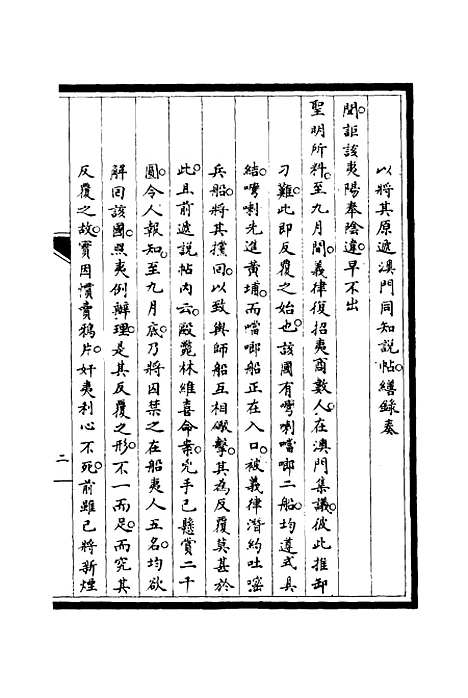 以將其原遞澳門同知說帖。繕錄奏
聞。詎該夷陽奉陰違。早不出
聖明所料。至九月間。義律復招夷商數人。在澳門集議。彼此推卸
刁難。此即反覆之始也。該國有彎喇噹啷二船。均遵式具
結。彎喇先進黃埔。而噹啷船正在入口。被義律潛約吐嘧
兵船。將其攩回。以致與師船互相礮擊。其為反覆莫甚於
此。且前遞說帖內云。毆斃林維喜命案。兇手已懸賞二千
圓。令人報知。至九月底。乃將囚禁之在船夷人五名。均欲
解回該國。照夷例辦理。是其反覆之形。不一而足。而究其
反覆之故。實因慣賣鴉片。奸夷利心不死。前雖已將新煙
二